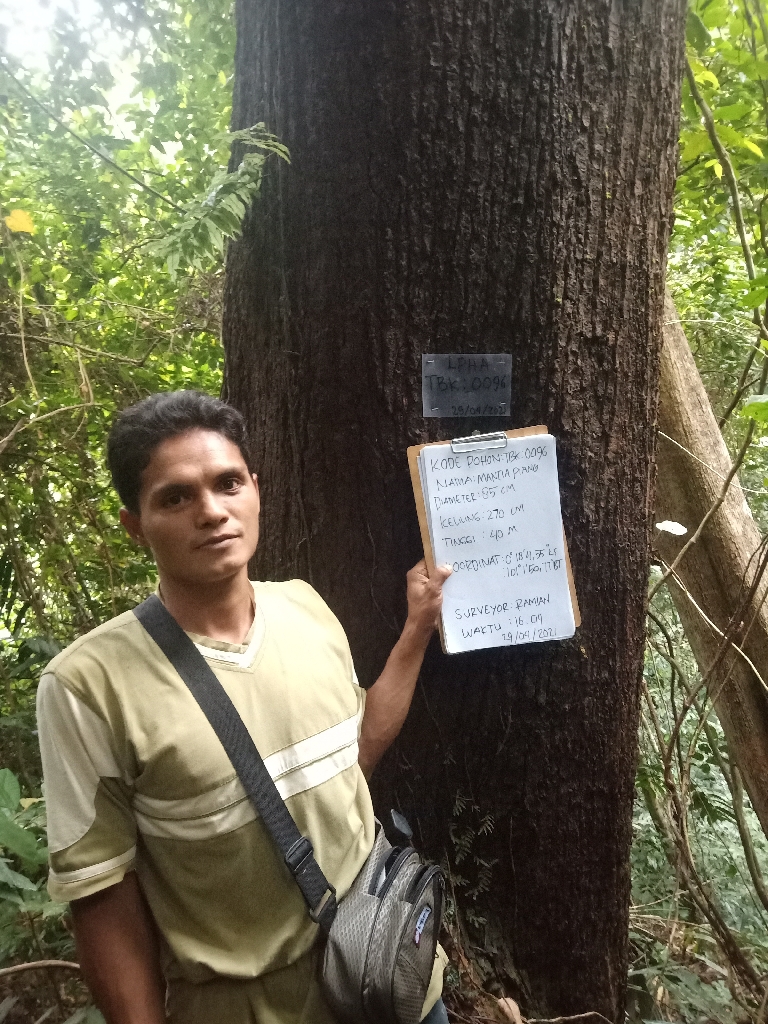 LPHA
TBK:0096
29/04/2021
KODE POHON:TBK.0096
NAMA:MANTIA PIANG
DIAMETER:85 CM
KELILING:270 CM
TINGGI :40 M
COORDINAT:0°18'4,55"LS
:101°1'50,77"BT
SURVEYOR:RAMIAN
WAKTU :16.09
29/04/2021